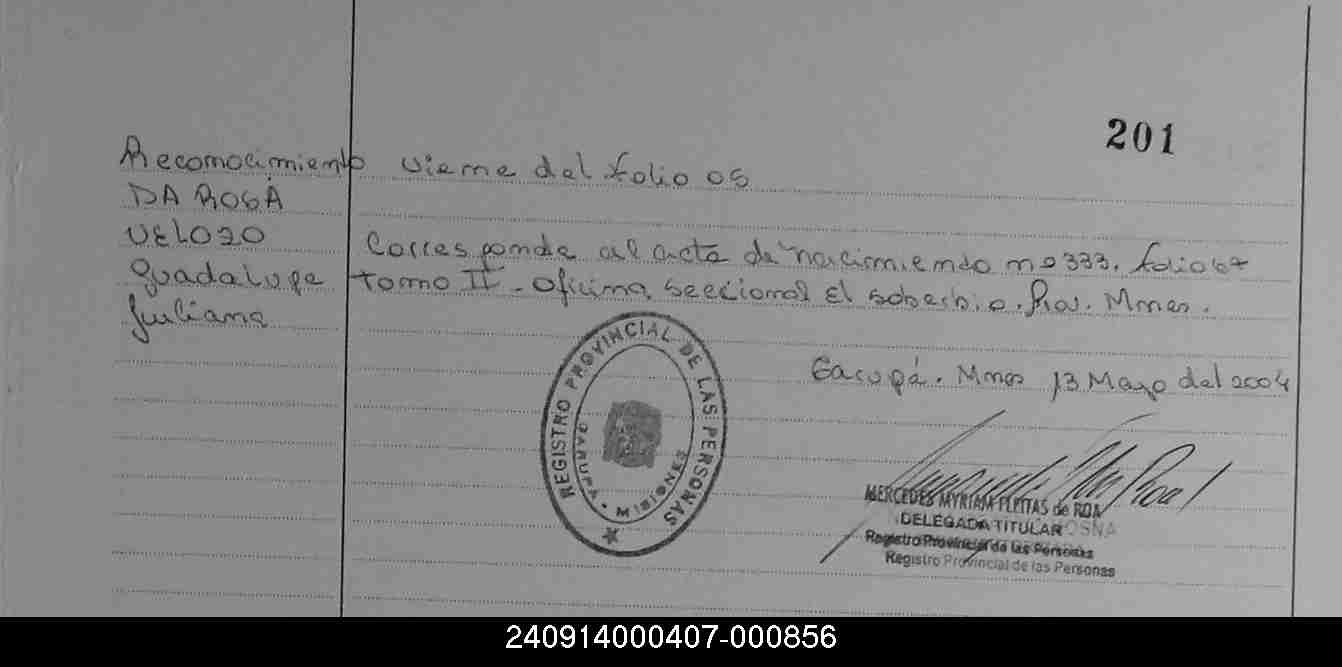 201
Reconocimiento
DA ROSA
VELOZO
Guadalupe
Juliana
viene del folio 05
Corresponde al acta de nacimiento nº 333. folio 67
tomo II - Oficina seccional El soberbio. Prov. Mnes.
Garupá. Mnes 13 Mayo del 2004
REGISTRO PROVINCIAL DE LAS PERSONAS
MISIONES
MERCEDES MYRIAM FLEITAS de ROA
DELEGADA TITULAR
Registro Provincial de las Personas
Registro Provincial de las Personas
240914000407-000856